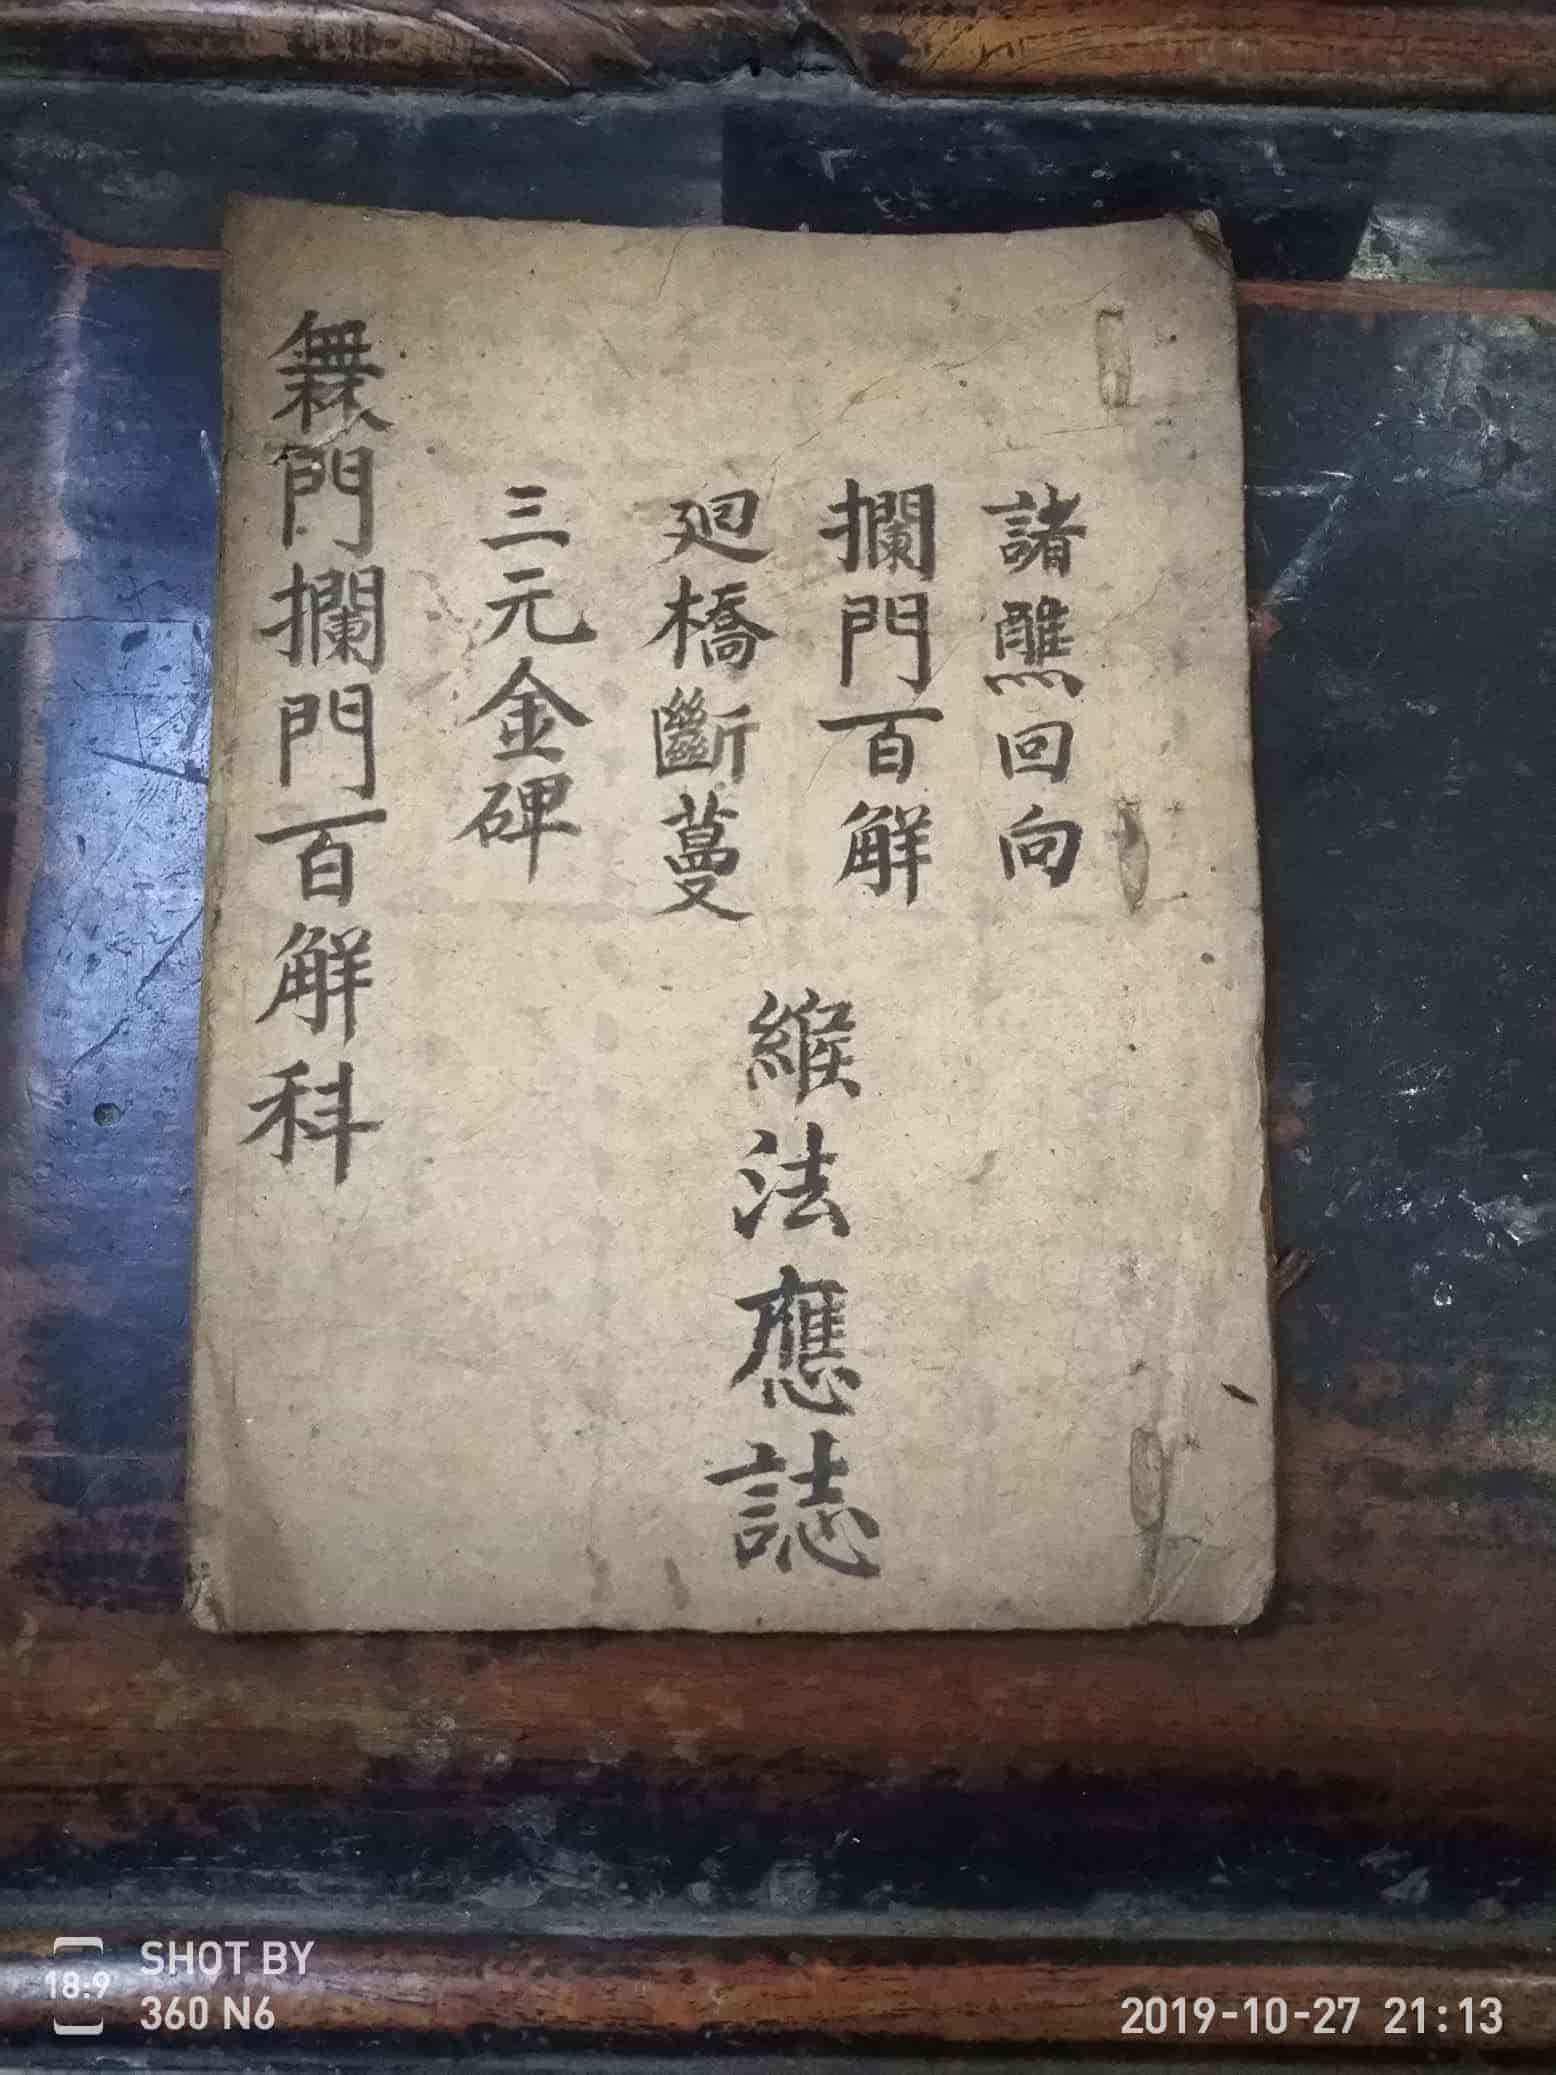 諸醮回向
攔門百解
廻橋斷蔓
三元金碑
緱法應誌
門攔門百解科
SHOT BY
18:9
360 N6
2019-10-27 21:13